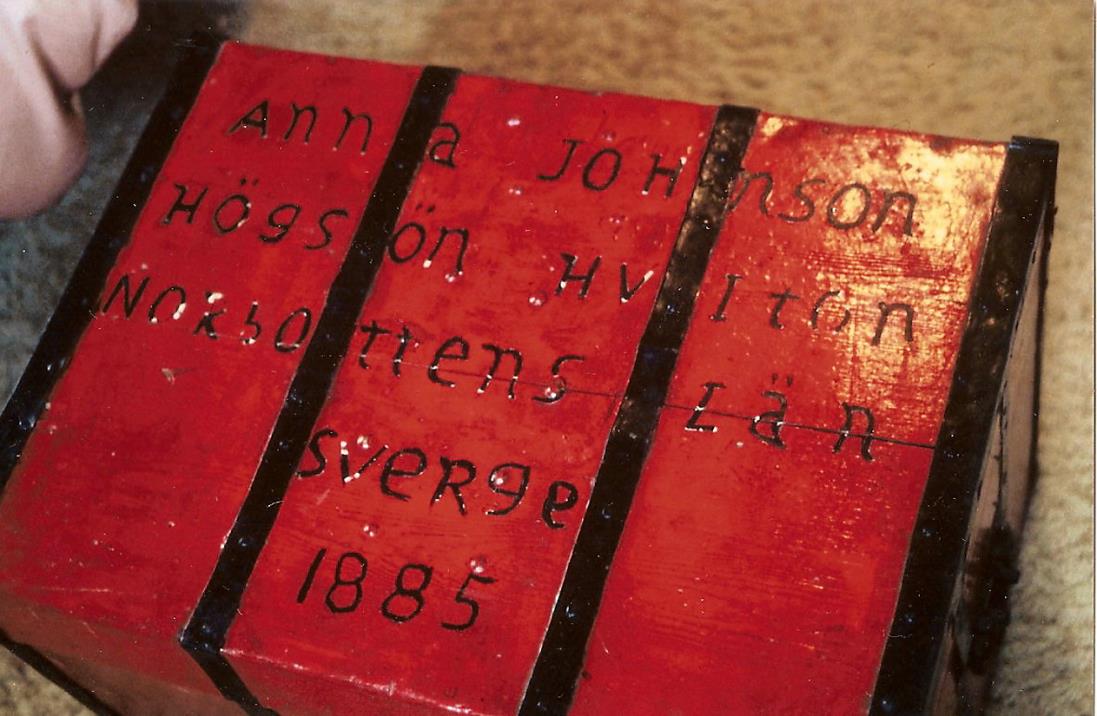 Anna JOHnson
HÖgSÖn HVIton
NOkbottens Län
sverge
1885